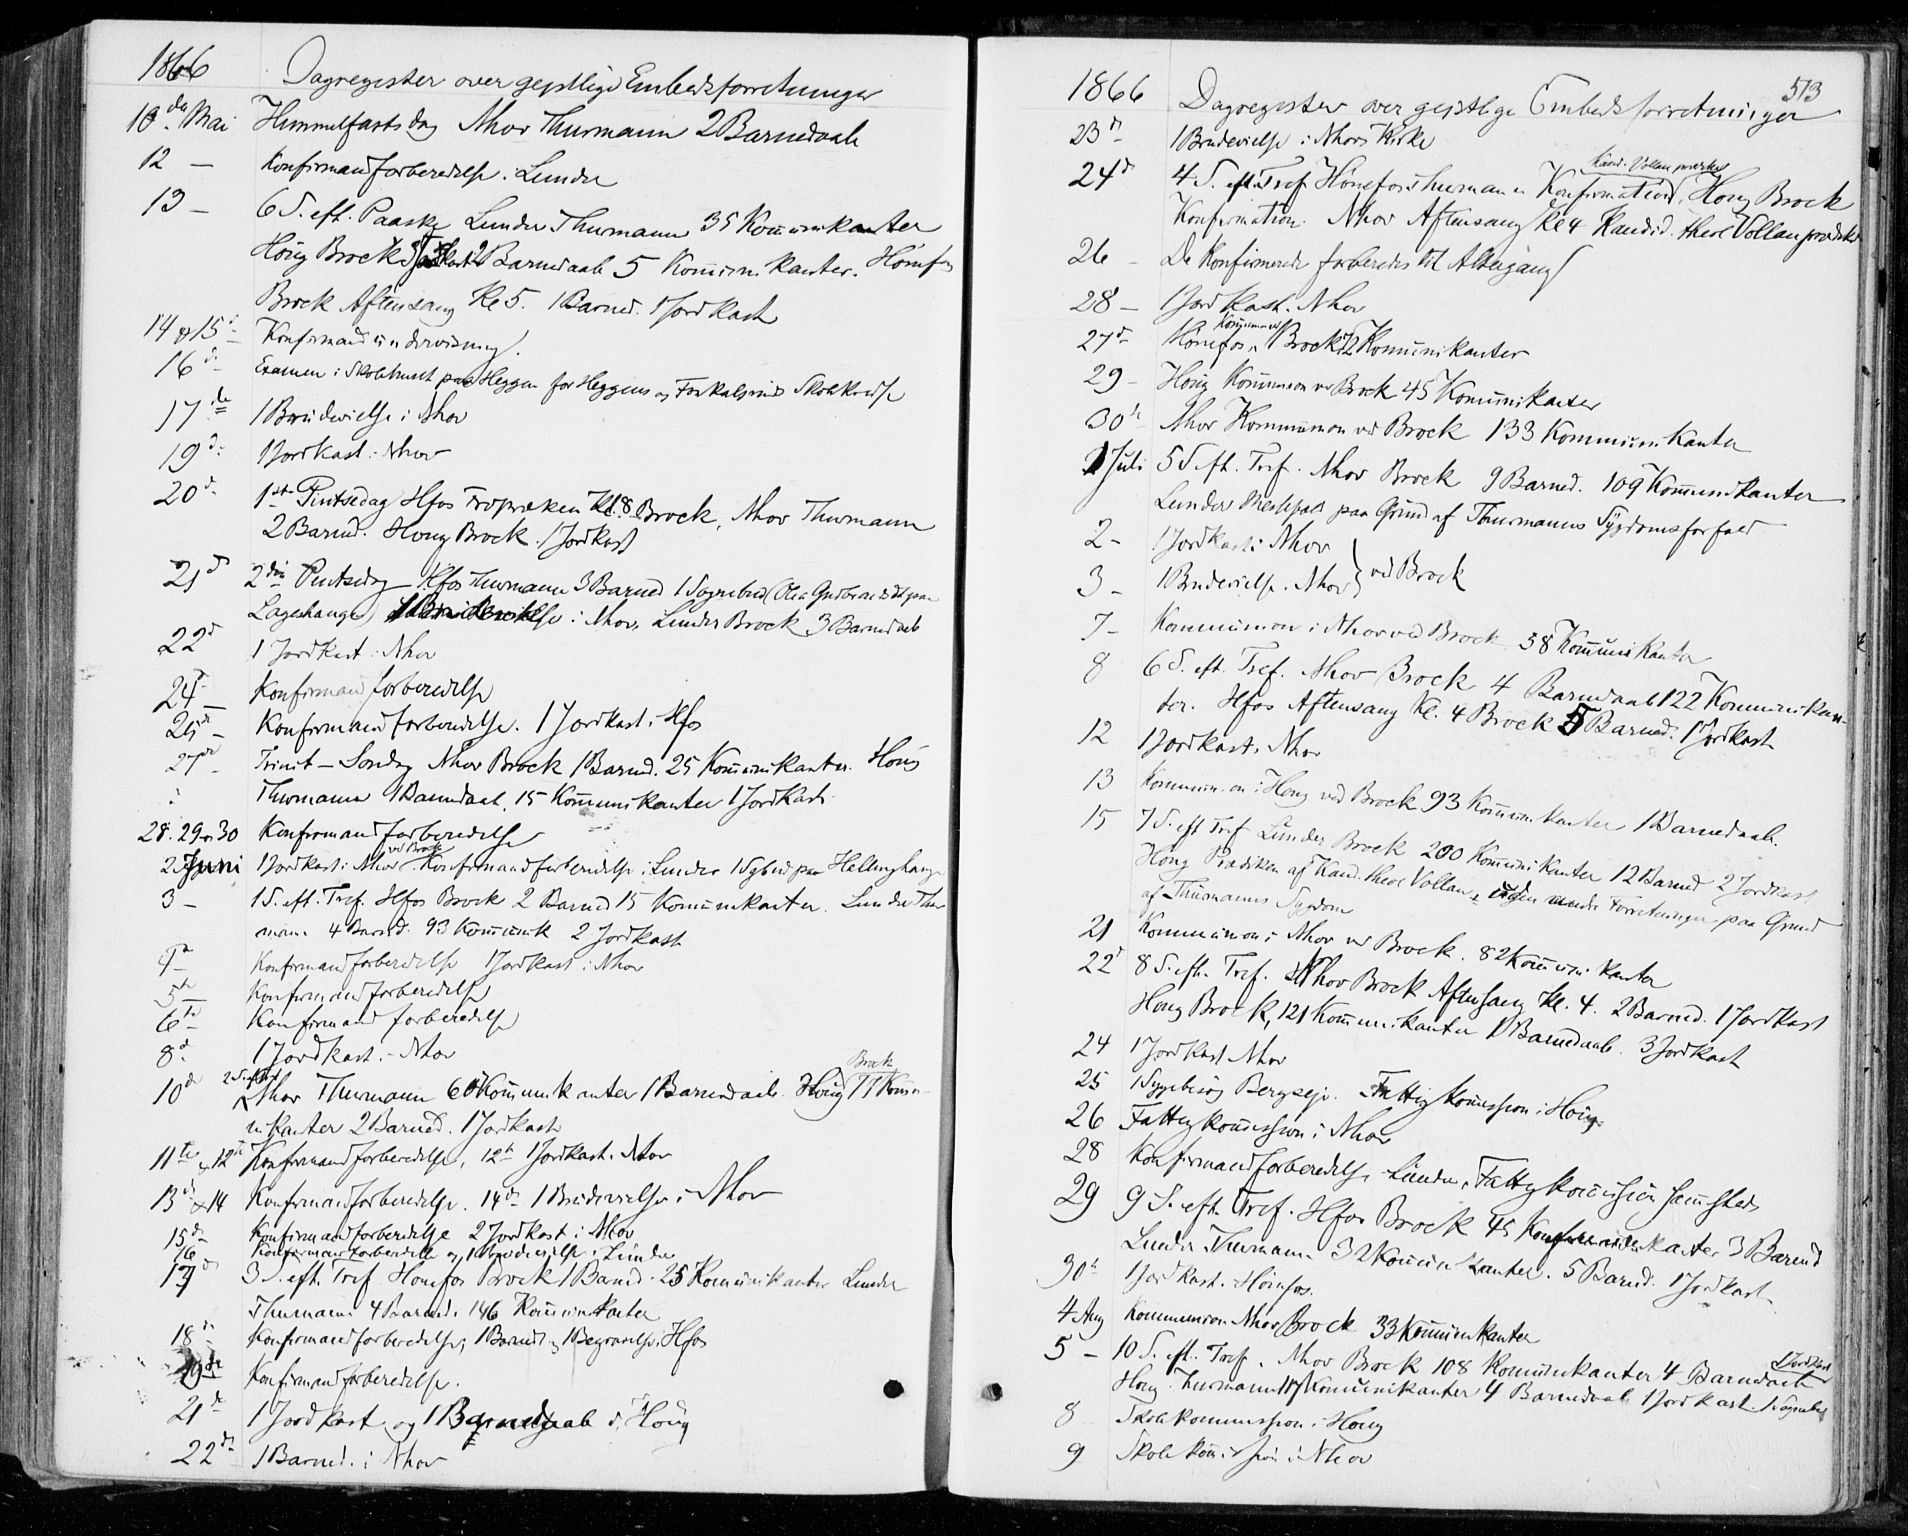 1866 Dagregister over geistlige Embedsforretninger
10de Mai Himmelfartsdag Nhov Thurmann 2 Barnedaab
12 — Konfirmandforberedelse i Lunder
13 — 6 S. eft. Paaske Lunder Thurmann 35 Kommunikanter
Houg Brock 2 Barnedaab 5 Kommunikanter. Hønefos
Brock Aftensang Kl 5. 1 Barned. 1 Jordkast
14 & 15d Konfirmandundervisning.
16d Examen i Skolehuset paa Heggen for Heggens og Skolekredse
17de 1 Brudevielse i Nhov
19d 1 Jordkast i Nhov
20d 1ste Pintsedag Hfos Froprækn Kl. 8 Brock, Nhov Thurmann
2 Barned. Houg Brock 1 Jordkast
21d 2den Pintsedag Hfos Thurmann 3 Barned 1 Sognebud (Ole paa
Lageshaugen) 1 Brudevielse i Nhov, Lunder Brock 3 Barnedaab
22d 1 Jordkast i Nhov
24d Konfirmandforberedelse
25d Konfirmandforberedelse. 1 Jordkast i Hfos
27de Trinit — Søndag Nhov Brock 1 Barned. 25 Kommunikanter. Houg
Thurmann 1 Barnedaab, 15 Kommunikanter 1 Jordkast.
28. 29 og 30 Konfirmandforberedelse
2 Juni 1 Jordkast i Nhov ved Brock. Konfirmandforberedelse i Lunder 1 Sgbud paa
3 — 1 S. eft. Tref. Hfos Brock 2 Barned 15 Kommunikanter. Lunder Thur
mann 4 Barned. 93 Kommunik 2 Jordkast
4de Konfirmandforberedelse 1 Jordkast i Nhov
5te Konfirmandforberedelse
6te Konfirmandforberedelse
8d 1 Jordkast i Nhov
10de 2 S. eft. Tref Nhov Thurmann 60 Kommunikanter 1 Barnedaab. Houg Brock 11 Komu-
nikanter 2 Barned. 1 Jordkast
11te & 12te Konfirmandforberedelse, 12te 1 Jordkast i Nhov
13d & 14 Konfirmandforberedelse. 14de 1 Brudevielse i Nhov
15de Konfirmandforberedelse 2 Jordkast i Nhov
16 Konfirmandforberedelse og 1 Brudevielse i Lunder
17d 3 S. eft. Tref Hønefos Brock 1 Barned. 25 Kommunikanter Lunder
Thurmann 4 Barned. 146 Kommunikanter
18d Konfirmandforberedelse, 1 Barned og 1 Begravelse i Hfos
19de Konfirmandforberedelse.
21d 1 Jordkast og 1 Barnedaab i Houg
22de 1 Barned. i Nhov
513
1866 Dagregister over geistlige Embedsforretninger
23d 1 Brudevielse i Nhovs Kirke
24d 4 S. eft. Tref Hønefos Thurmann Konfirmation Kand. Vollan prædiker, Houg Brock
Konfirmation. Nhov Aftensang Kl 4 Kandid. theol Vollan prædiker
26 — De Konfirmerede forberedes til Altergang
28 — 1 Jordkast. Nhov
27d Hønefos, Kommunion Brock 72 Kommunikanter
29 — Houg Kommunion ved Brock 45 Kommunikanter
30te Nhov Kommunion ved Brock 133 Kommunikanter
1 Juli 5 S eft. Tref. Nhov Brock 9 Barned. 109 Kommunikanter
Lunder Messefald paa Grund af Thurmanns Sygdomsforfald
2 — 1 Jordkast i Nhov
3 — 1 Brudevielse i Nhov } ved Brock
7 — Kommunion i Nhov ved Brock 58 Kommunikanter
8 6 S. eft. Tref. Nhov Brock 4 Barnedaab 122 Kommunikan-
ter. Hfos Aftensang Kl. 4 Brock 5 Barned. 1 Jordkast
12 1 Jordkast i Nhov
13 Kommunion i Houg ved Brock 93 Kommunikanter 1 Barnedaab.
15 7 S. eft Tref Lunder Brock 200 Kommunikanter 12 Barned 2 Jordkast
Houg Prædiken af Kand. theol Vollan, ingen andre Forretninger paa Grund
af Thurmanns Sygdom
21 Kommunion i Nhov ved Brock. 82 Kommunikanter
22d 8 S. eft. Tref. Nhov Brock Aftensang Kl. 4. 2 Barned. 1 Jordkast
Houg Brock, 121 Kommunikanter 1 Barnedaab. 3 Jordkast
24 1 Jordkast Nhov
25 1 Sygebesøg Bergseje. Fattigkommission i Houg
26 Fattigkommission i Nhov
28 Konfirmandforberedelse Lunder, Fattigkommission sammesteds
29 9 S. eft. Tref. Hfos Brock 45 Kommunikanter 3 Barned
Lunder. Thurmann 32 Kommunikanter. 5 Barned. 1 Jordkast.
30te 1 Jordkast. Hønefos.
4 Aug Kommunion Nhov Brock 33 Kommunikanter
5 — 10 S. eft. Tref. Nhov Brock 108 Kommunikanter 4 Barnedaab 1 Jordkast
Houg. Thurmann 117 Kommunikanter 4 Barnedaab 1 Jordkast. 1 Sognebud
8 Skolekommission i Houg
9 Skolekommission i Nhov